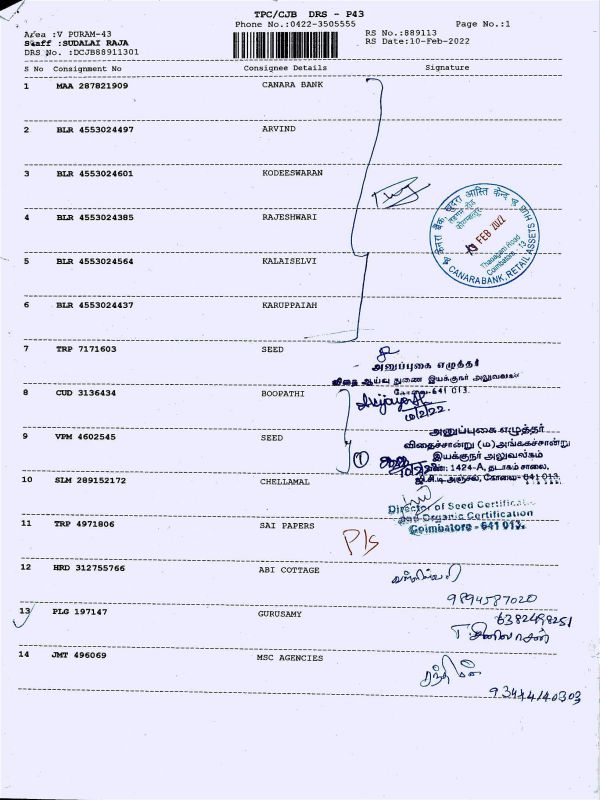 TPC/CJB DRS - P43
Phone No.:0422-3505555
Page No.:1
Area :V PURAM-43
RS No.:889113
Staff :SUDALAI RAJA
RS Date:10-Feb-2022
DRS No. :DCJB88911301
S No Consignment No Consignee Details Signature
1 MAA 287821909 CANARA BANK
2 BLR 4553024497 ARVIND
3 BLR 4553024601 KODEESWARAN
4 BLR 4553024385 RAJESHWARI
केनरा बैंक, खुदरा आस्ति केन्द्र
FEB 2022
Thadagam Road
Coimbatore - 13
CANARA BANK, RETAIL ASSETS HUB
5 BLR 4553024564 KALAISELVI
6 BLR 4553024437 KARUPPAIAH
7 TRP 7171603 SEED
அனுப்புகை எழுத்தர்
விதை ஆய்வு துணை இயக்குநர் அலுவலகம்
கோவை-641 013.
8 CUD 3136434 BOOPATHI
10/2/22.
அனுப்புகை எழுத்தர்
9 VPM 4602545 SEED
விதைச்சான்று (ம) அங்ககச்சான்று
இயக்குநர் அலுவலகம்
1
1424-A, தடாகம் சாலை,
ஜி.சி.டி அஞ்சல், கோவை-641 013.
10 SLM 289152172 CHELLAMAL
Director of Seed Certificat
and Organic Certification
Coimbatore - 641 013.
11 TRP 4971806 SAI PAPERS
P/s
12 HRD 312755766 ABI COTTAGE
9894587020
13 PLG 197147 GURUSAMY
6382498251
14 JMT 496069 MSC AGENCIES